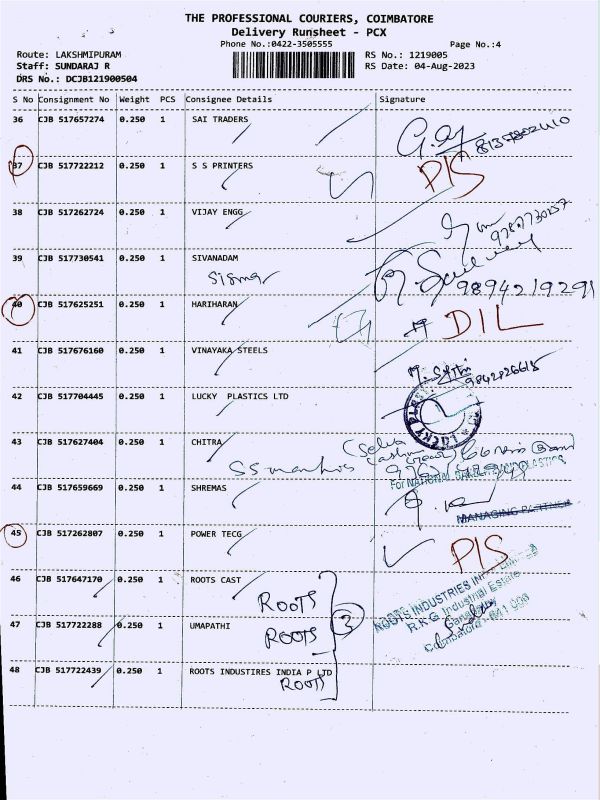 THE PROFESSIONAL COURIERS, COIMBATORE
Delivery Runsheet - PCX
Phone No.:0422-3505555 Page No.:4
Route: LAKSHMIPURAM RS No.: 1219005
Staff: SUNDARAJ R RS Date: 04-Aug-2023
DRS No.: DCJB121900504
S No Consignment No Weight PCS Consignee Details Signature
36 CJB 517657274 0.250 1 SAI TRADERS
37 CJB 517722212 0.250 1 S S PRINTERS PIS
38 CJB 517262724 0.250 1 VIJAY ENGG
39 CJB 517730541 0.250 1 SIVANADAM
9894219291
40 CJB 517625251 0.250 1 HARIHARAN DIL
41 CJB 517676160 0.250 1 VINAYAKA STEELS
9842826615
42 CJB 517704445 0.250 1 LUCKY PLASTICS LTD
43 CJB 517627404 0.250 1 CHITRA
44 CJB 517659669 0.250 1 SHREMAS
MANAGING PARTNER
45 CJB 517262807 0.250 1 POWER TECG PIS
46 CJB 517647170 0.250 1 ROOTS CAST
ROOTS
ROOTS INDUSTRIES
R.K.G. Industrial Estate
47 CJB 517722288 0.250 1 UMAPATHI
ROOTS 3
Coimbatore - 641 006
48 CJB 517722439 0.250 1 ROOTS INDUSTIRES INDIA P LTD
ROOTS